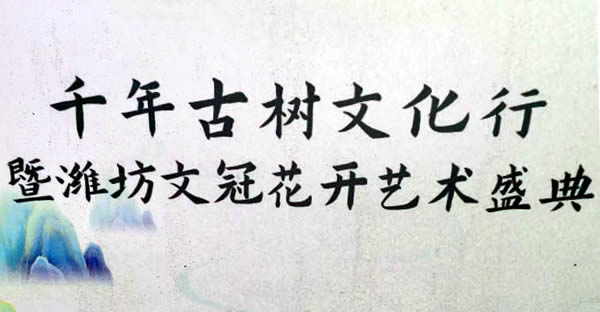 千年古树文化行
暨潍坊文冠花开艺术盛典